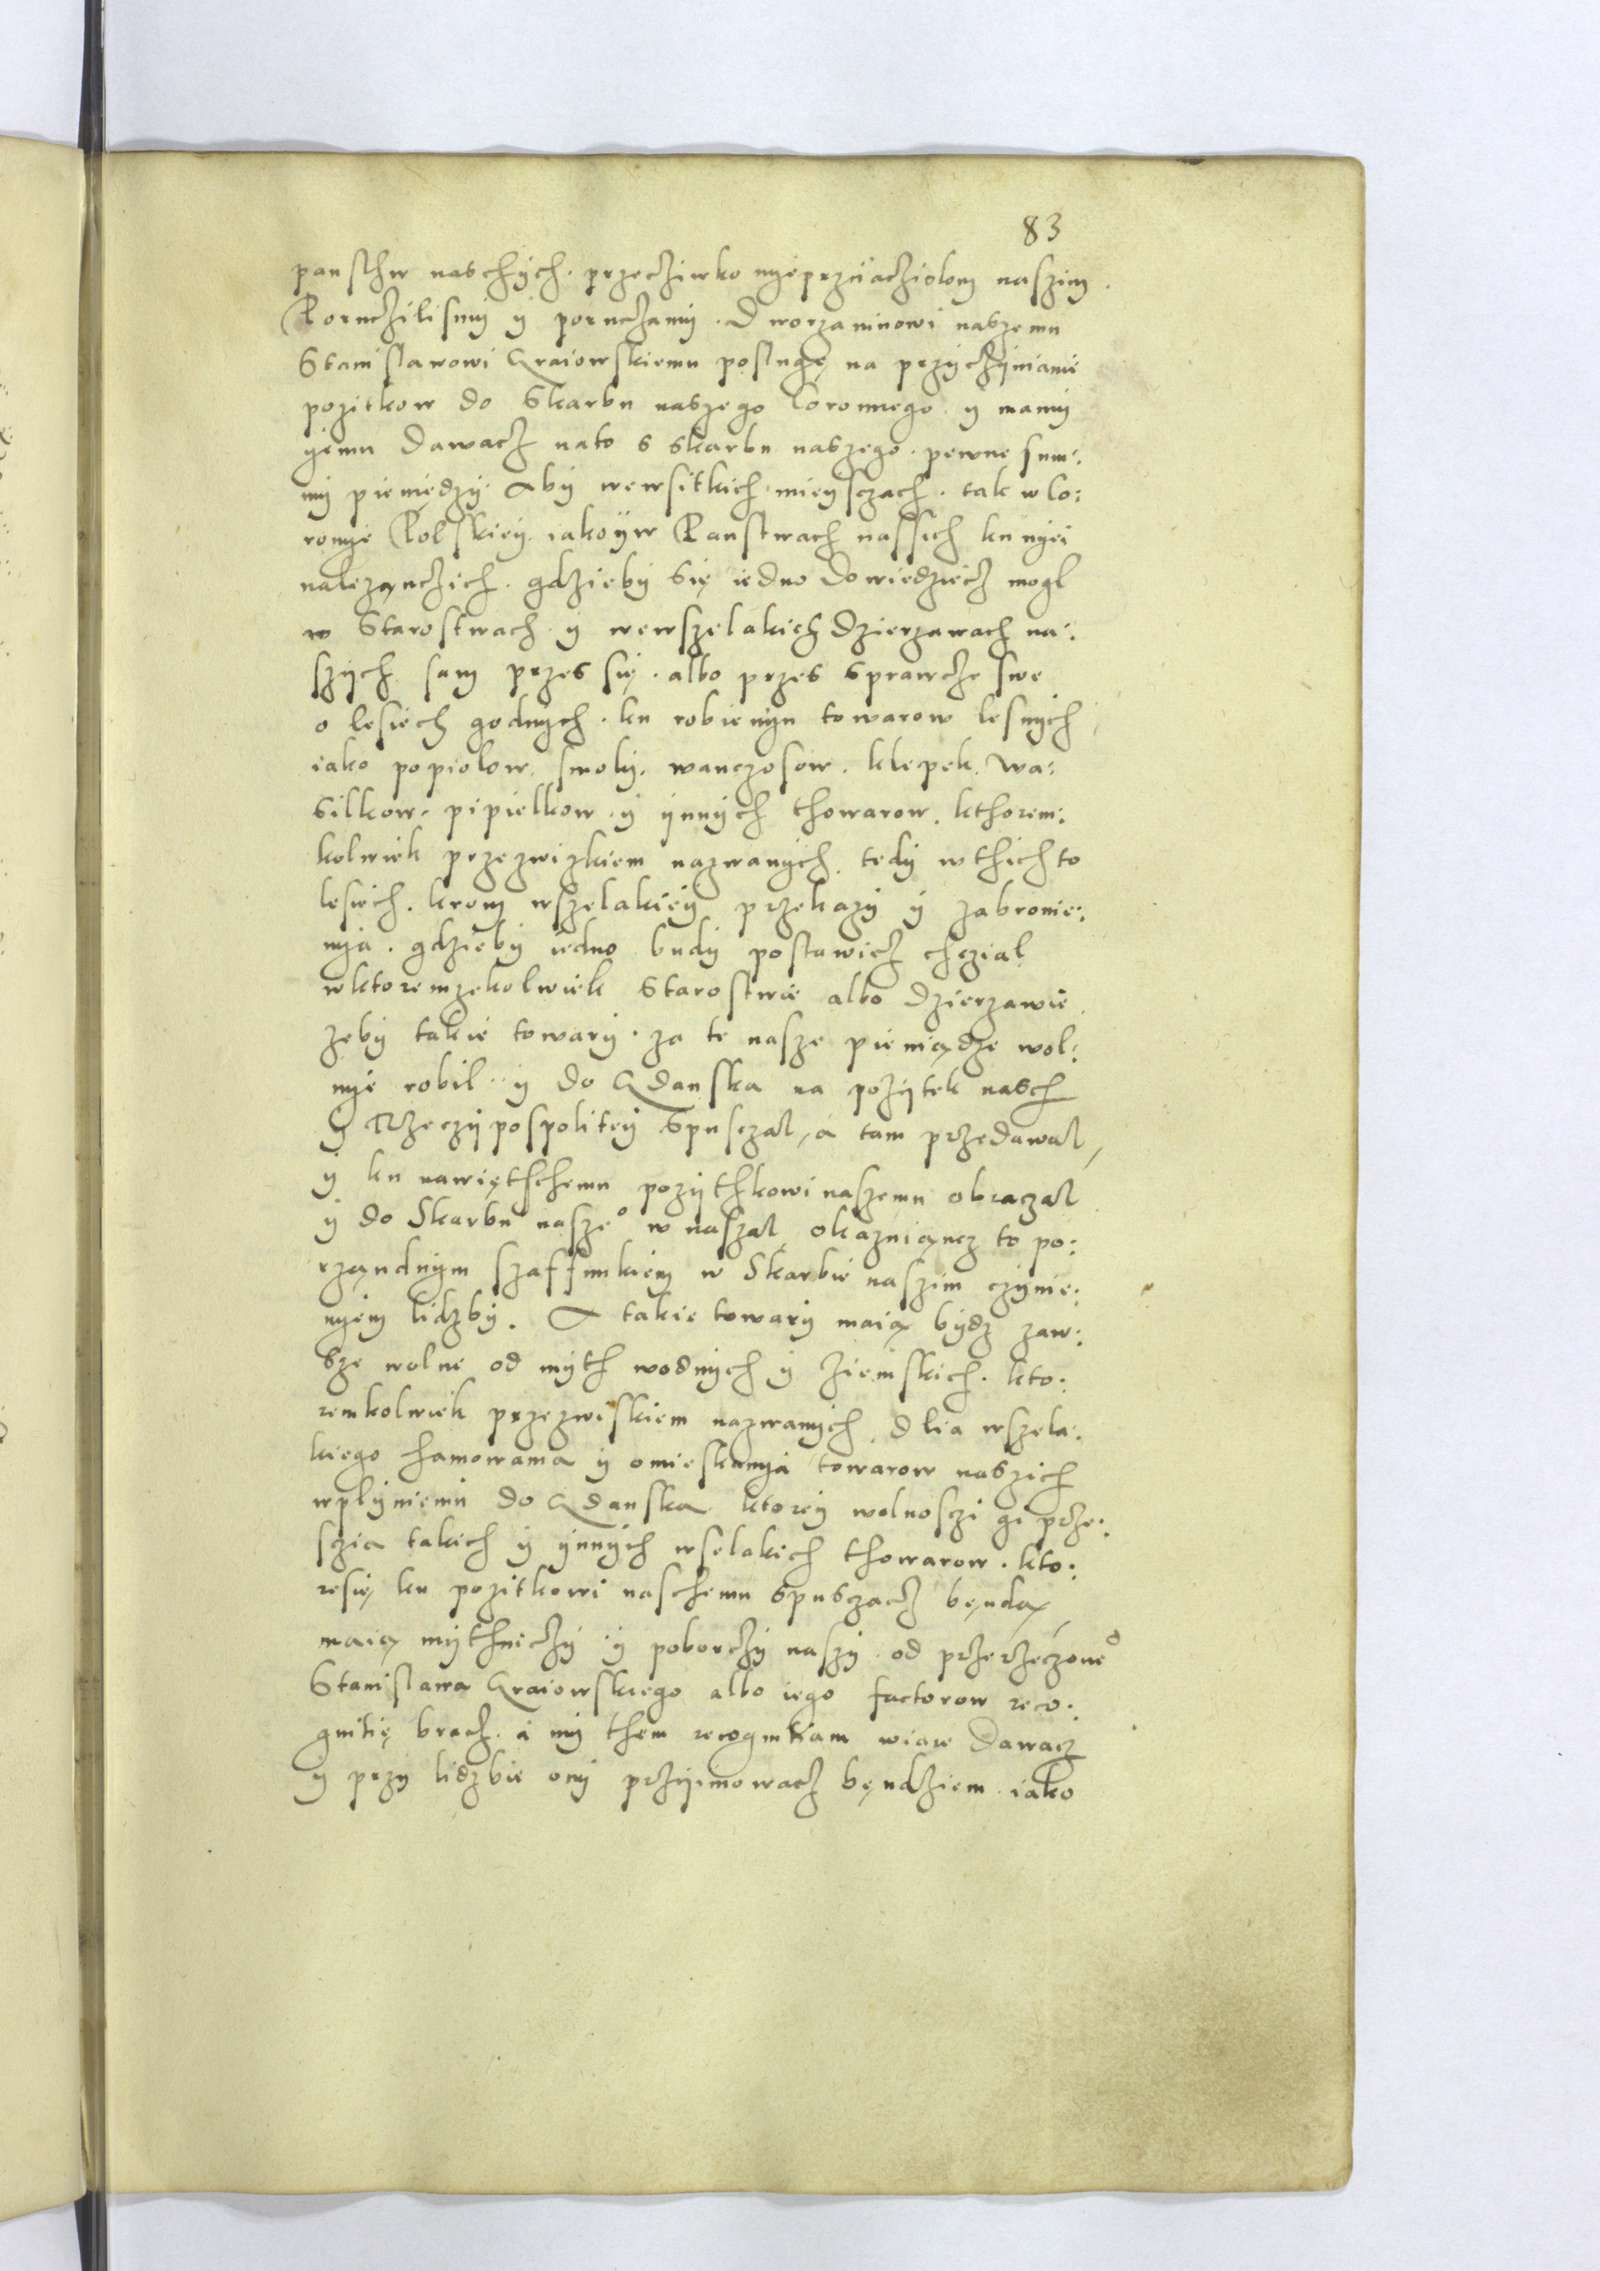 83
pansthw naschÿch · przeczÿwko nÿeprzÿaczÿolom naszÿm ·
Poruczÿlismÿ ÿ poruczamÿ · Dworzaninowi naszemu
Stanislawowi Graiowskiemu poslugę na przÿczÿnianie
pozitkow do Skarbu naszego Coronnego · ÿ mamÿ
gÿemu dawacz nato s skarbu naszego · pewne sum:
mÿ pieniędzÿ · Abÿ wewsitkich mieÿsczach · tak w Co:
ronÿe Polskieÿ · iakoÿw Panstwach nassich ku nÿei
należąnczich · gdziebÿ się iedno dowiedziecz mogl
w Starostwach · ÿ wewszelakich dzierzawach na:
szÿch · sam przes się · albo przes sprawcze swe
o lesiech godnÿch · ku robienÿu towarow lesnÿch
iako popiolow, smolÿ, wanczosow, klepek, wa:
silkow, pipielkow · ÿ ÿnnÿch thowarow, kthorem:
kolwiek przezwiskiem nazwanÿch, tedÿ w thich to
lesiech · krom wszelakieÿ przekazÿ ÿ zabronie:
nÿa · gdziebÿ iedno budÿ postawicz chczial
wktoremzekolwiek Starostwie albo dzierzawie
zebÿ takie towarÿ · za te nasze pieniądze wol:
nÿe robil · ÿ do Gdanska na pożÿtek nasch
ÿ Rzeczÿpospoliteÿ spusczal, a tam przedawal,
ÿ ku nawiętschemu pozÿthkowi naszemu obraczal
ÿ do Skarbu nasze° wnaszal, okazuiąncz to po:
rząndnÿm szaffunkiem w Skarbie naszim czÿnie:
nÿem lidzbÿ. A takie towarÿ maią bÿdz zaw:
sze wolne od mÿth wodnÿch ÿ ziemskich · kto:
remkolwiek przezwiskiem nazwanÿch, dlia wszela:
kiego hamowania ÿ omieskanÿa towarow naszich
wplÿnieniu do Gdanska ktoreÿ wolnosczi gi prze:
sczia takich ÿ ÿnnÿch wselakich thowarow · kto:
resię ku pozitkowi naschemu spusczacz będą,
maią mÿthniczÿ ÿ poborczÿ naszÿ · od przerzeczone°
Stanislawa Graiowskiego albo iego factorow reco:
gnitię bracz · a mÿ them recognitiam wiarę dawacz
ÿ przÿ lidzbie onÿ przÿimowacz będziem · iako